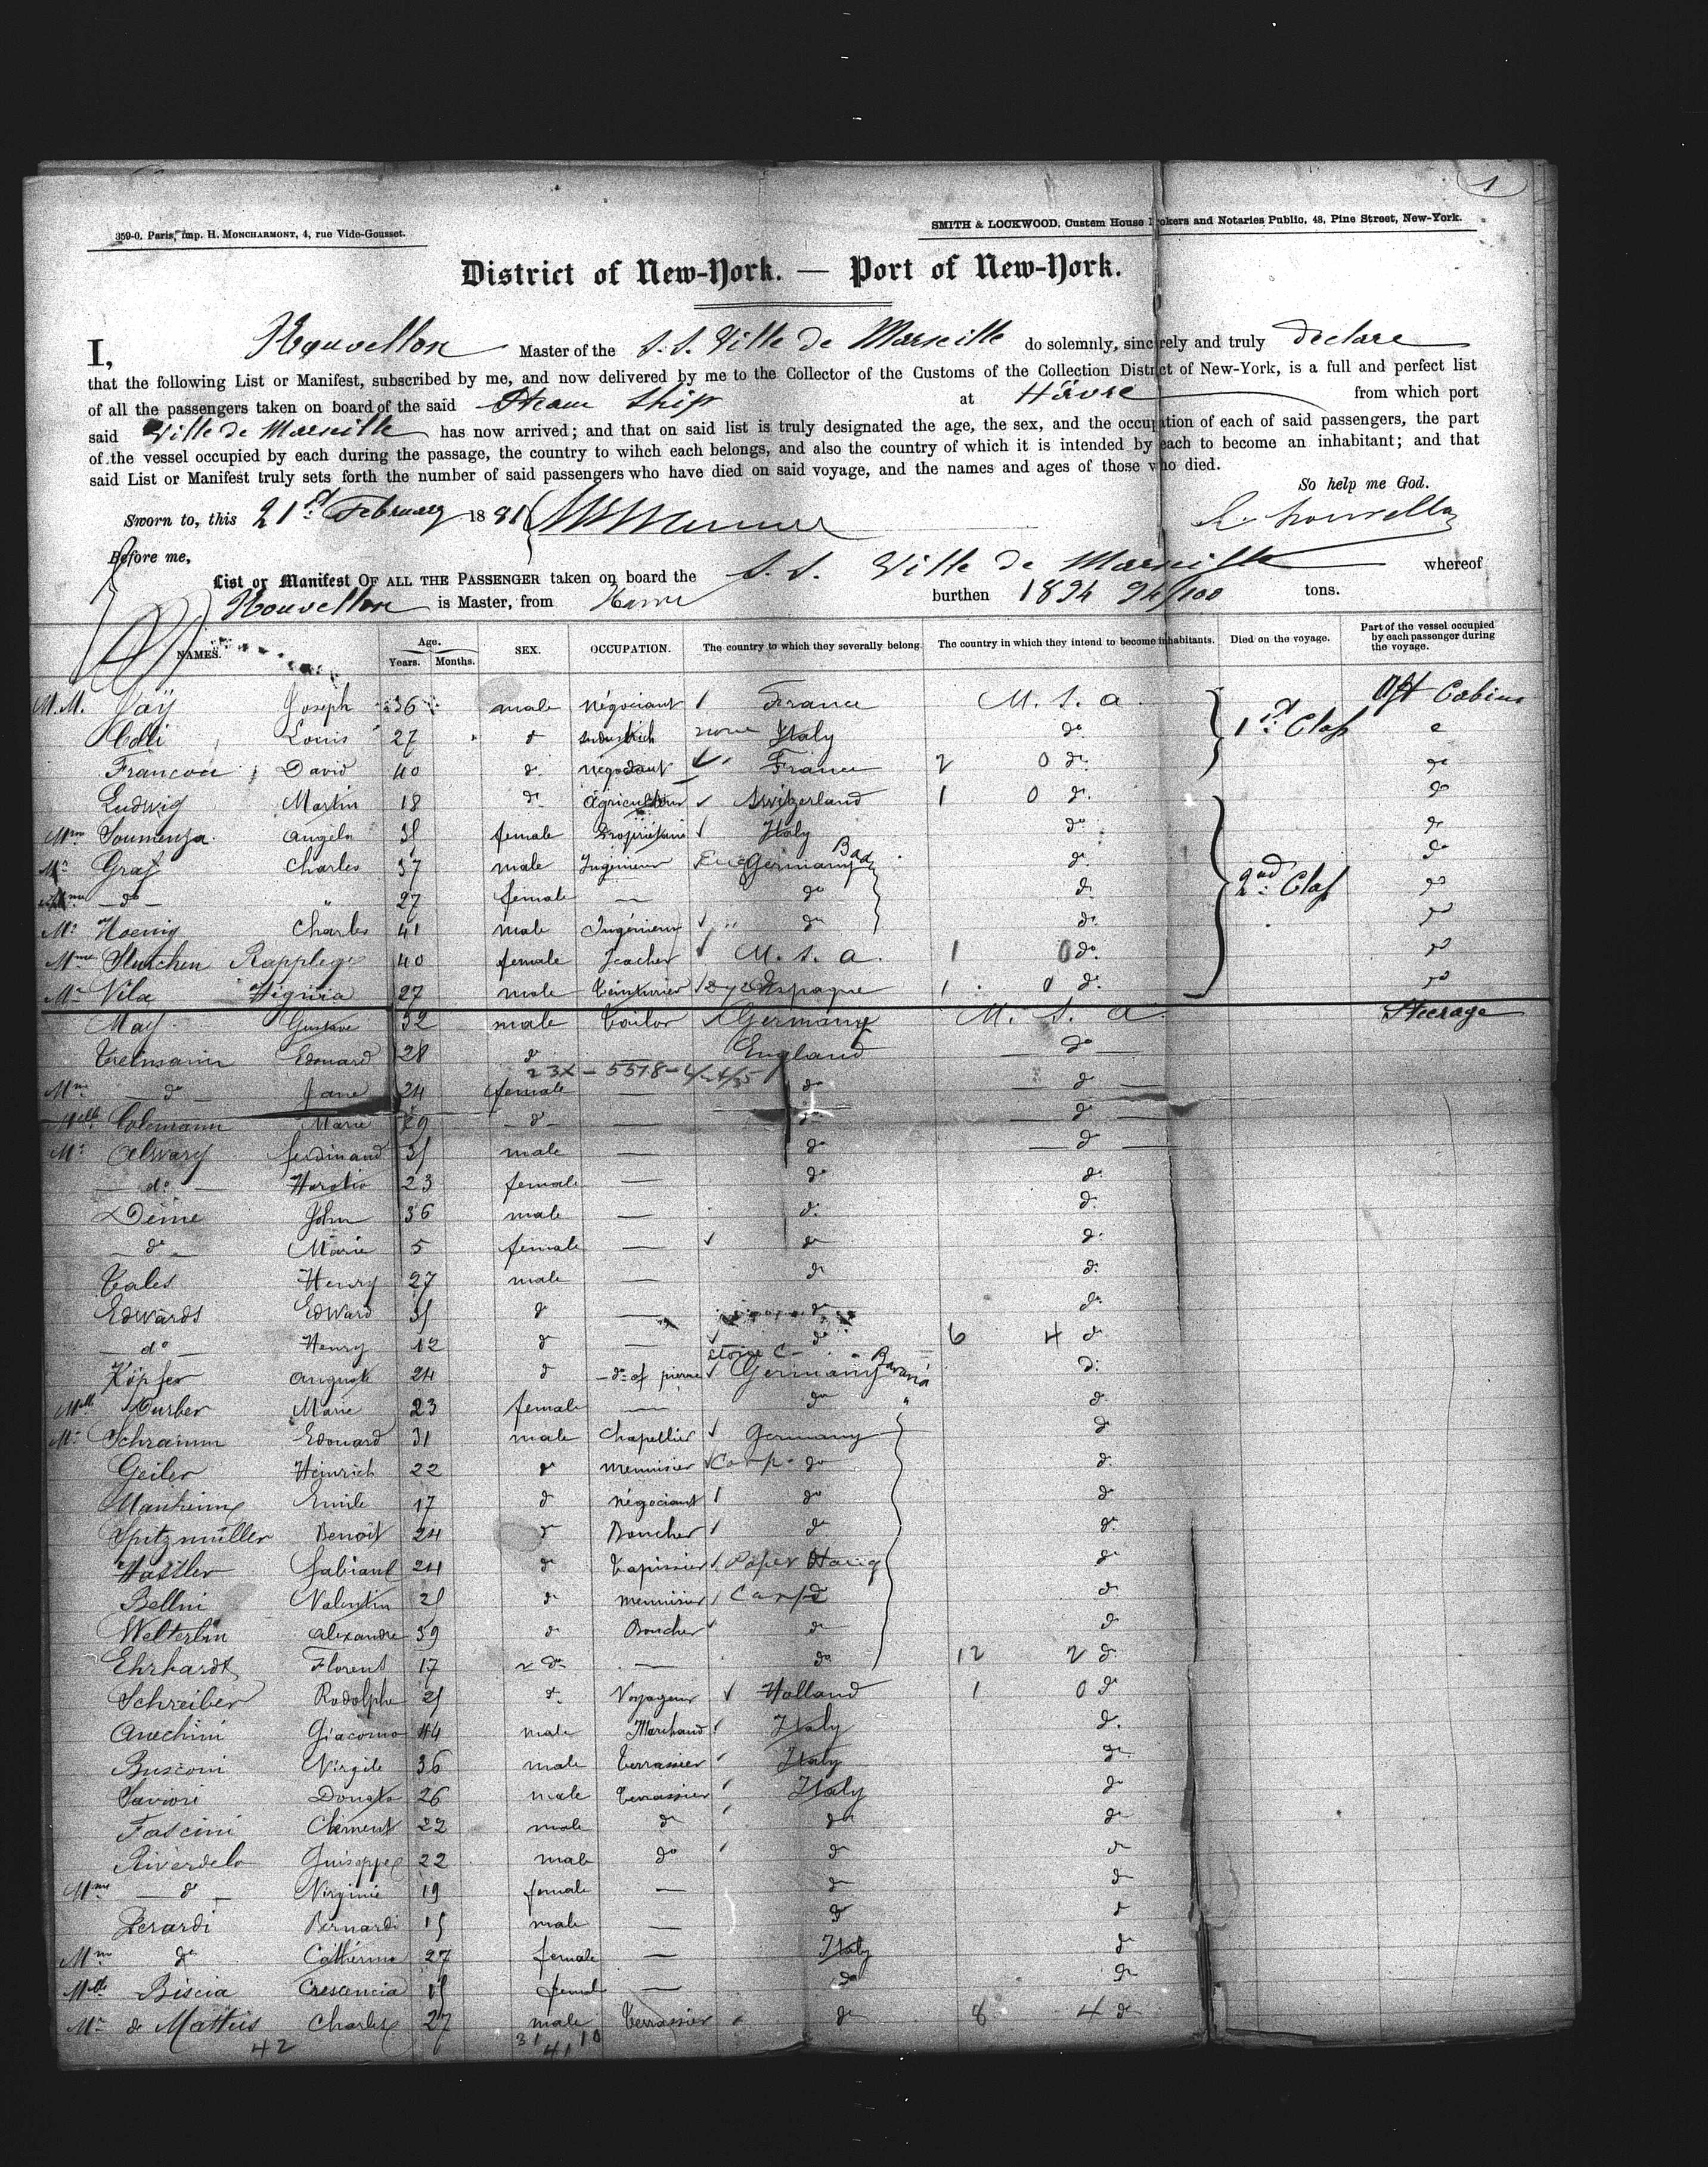 1
359-0. Paris, imp. H. MONCHARMONT, 4, rue Vide-Gousset.
SMITH & LOCKWOOD, Custem House Brokers and Notaries Public, 48, Pine Street, New-York.
District of New-York. — Port of New-York.
I, Houvellon Master of the S. S. Ville de Marseille do solemnly, sincerely and truly declare
that the following List or Manifest, subscribed by me, and now delivered by me to the Collector of the Customs of the Collection District of New-York, is a full and perfect list
of all the passengers taken on board of the said Steam Ship at Hâvre from which port
said Ville de Marseille has now arrived; and that on said list is truly designated the age, the sex, and the occupation of each of said passengers, the part
of the vessel occupied by each during the passage, the country to wihch each belongs, and also the country of which it is intended by each to become an inhabitant; and that
said List or Manifest truly sets forth the number of said passengers who have died on said voyage, and the names and ages of those who died.
So help me God.
Sworn to, this 21st February 1881
Before me,
List or Manifest OF ALL THE PASSENGER taken on board the S. S. Ville de Marseille whereof
Houvellon is Master, from Havre burthen 1894 94/100 tons.
NAMES. Age. Years. Months. SEX. OCCUPATION. The country to which they severally belong. The country in which they intend to become inhabitants. Died on the voyage. Part of the vessel occupied by each passenger during the voyage.
M.M. Jäy Joseph 36 male négociant France U. S. a. Aft Cabins
Colli Louis 27 do none Italy do 1st Class
Francou David 40 do négociant France 2 0 do do
Ludwig Martin 18 do agriculteur Switzerland 1 0 do do
Mme Soumenza angela 35 female Propriétaire Italy do do
Mr Graf Charles 37 male Ingénieur Germany Bad do do
Mme — do — " 27 female — do do 2nd Class do
Mr Hoenig Charles 41 male Ingénieur do do do
Mme Rapplege 40 female Teacher U. S. a. 1 0 do do
Mr Vila 27 male Espagne 1 0 do do
May Gustave 32 male Tailor Germany U. S. a Steerage
Edouard 28 do — England — do —
Mme — do — Jane 24 female — do — do —
Melle Colemann Marie 29 do — do — do —
Mr Alvary ferdinand 35 male — do — do —
— do — Horatio 23 female — do do
Deine John 36 male — do do
— do — Marie 5 female — do do
Tales Henry 27 male — do do
Edwards Edward 35 do — do do
— do — Henry 12 do — do 6 4 do
Köpfer auguste 24 do do of pierre stone C Germany Bavaria do
Melle Marie 23 female — do do
Mr Schramm Edouard 31 male Chapellier Germany do
Geiler Heinrich 22 do menuisier Carp do do
Manheim Emile 17 do négociant do do
Spitzmüller Benoit 24 do Boucher do do
Hassler fabiant 24 do Tapissier Paper Hang do
Bellini Valentin 25 do menuisier Carp do do
Welterlin alexandre 39 do Boucher do do
Ehrhardt Florent 17 do — do 12 2 do
Schreiber Rodolphe 25 do Voyageur Holland 1 0 do
Giacomo 44 male Marchand Italy do
Busconi Virgile 36 male Terrassier Italy do
Saviori Donato 26 male Terrassier Italy do
Fascini Clement 22 male do do do
Riverdelo Guiseppe 22 male do do do
Mme — do — Virginie 19 female — do do
Zerardi Bernardi 15 male — do do
Mme do Cathérine 27 female — Italy do
Melle Biscia Crescencia 18 female — do do
Mr de Mattéis Charles 27 male Terrassier do 8 4 do
42 31 41 10